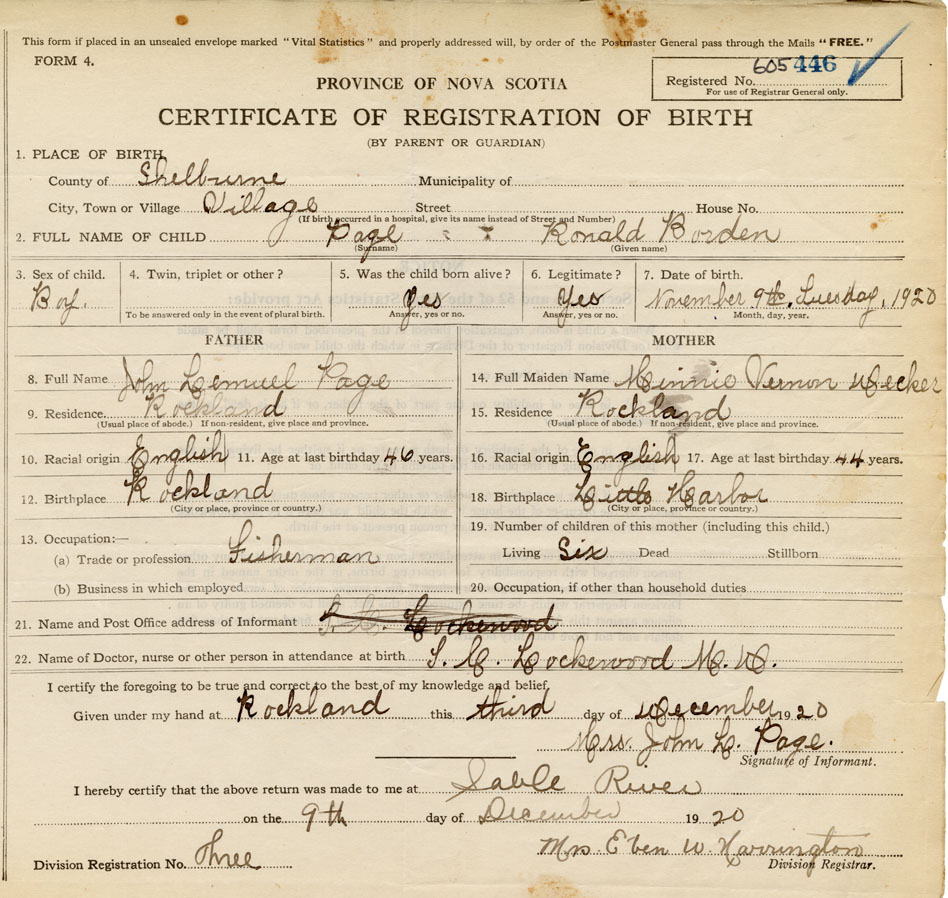 This form if placed in an unsealed envelope marked "Vital Statistics" and properly addressed will, by order of the Postmaster General pass through the Mails "FREE."
FORM 4.
605 446
Registered No.
For use of Registrar General only.
PROVINCE OF NOVA SCOTIA
CERTIFICATE OF REGISTRATION OF BIRTH
(BY PARENT OR GUARDIAN)
1. PLACE OF BIRTH
County of Shelburne Municipality of
City, Town or Village Village Street House No.
(If birth occurred in a hospital, give its name instead of Street and Number)
2. FULL NAME OF CHILD Page Ronald Borden
(Surname) (Given name)
3. Sex of child. 4. Twin, triplet or other? 5. Was the child born alive? 6. Legitimate? 7. Date of birth.
Boy. Yes Yes November 9th, Tuesday, 1920
To be answered only in the event of plural birth. Answer, yes or no. Answer, yes or no. Month, day, year.
FATHER MOTHER
8. Full Name John Lemuel Page 14. Full Maiden Name Minnie Vernon Decker
9. Residence Rockland 15. Residence Rockland
(Usual place of abode.) If non-resident, give place and province. (Usual place of abode.) If non-resident, give place and province.
10. Racial origin English 11. Age at last birthday 46 years. 16. Racial origin English 17. Age at last birthday 44 years.
12. Birthplace Rockland 18. Birthplace Little Harbor
(City or place, province or country.) (City or place, province or country.)
13. Occupation:— 19. Number of children of this mother (including this child.)
(a) Trade or profession Fisherman Living Six Dead Stillborn
(b) Business in which employed 20. Occupation, if other than household duties
21. Name and Post Office address of Informant S. C. Lockewood
22. Name of Doctor, nurse or other person in attendance at birth S. C. Lockewood M. D.
I certify the foregoing to be true and correct to the best of my knowledge and belief,
Given under my hand at Rockland this third day of December 1920
Mrs. John L. Page.
Signature of Informant.
I hereby certify that the above return was made to me at Sable River
on the 9th day of December 1920
Mrs Eben W. Harrington
Division Registration No. Three Division Registrar.